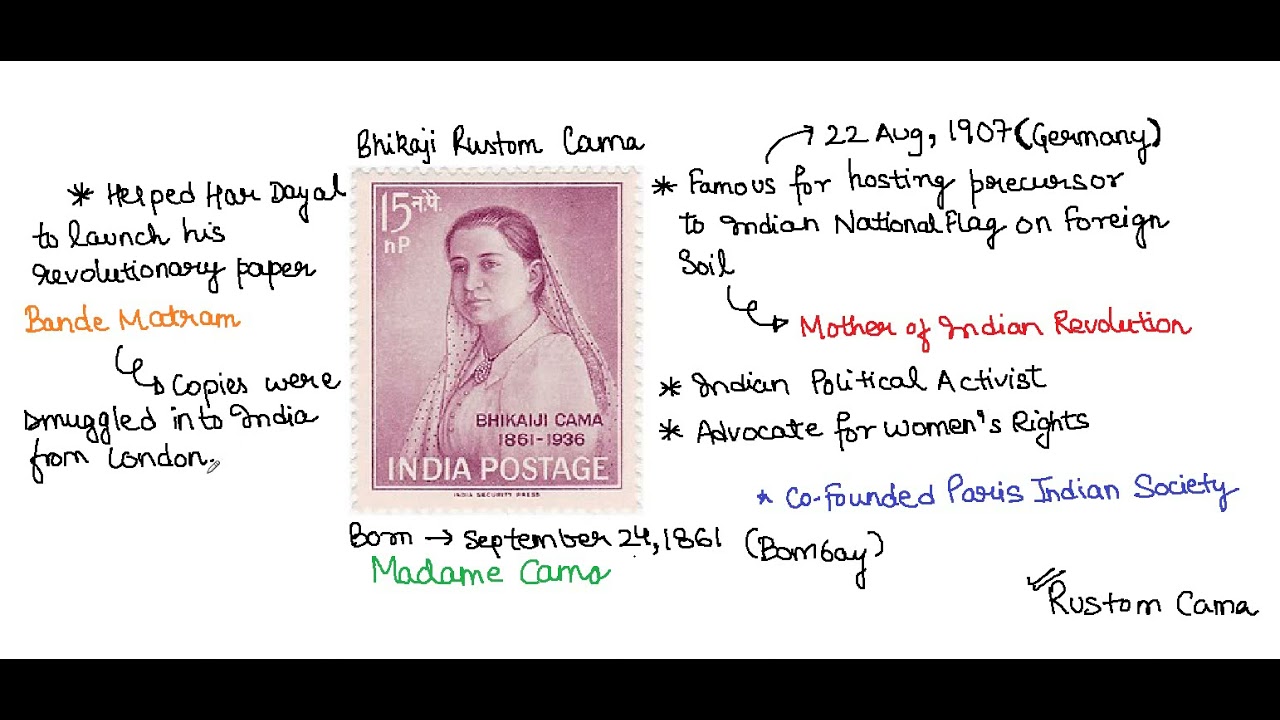 Bhikaji Rustom Cama
* Helped Har Dayal
to launch his
revolutionary paper
Bande Matram
Copies were
smuggled into India
from London.
15 न.पै.
nP
BHIKAIJI CAMA
1861-1936
INDIA POSTAGE
INDIA SECURITY PRESS
Born → September 24, 1861 (Bombay)
Madame Cama
22 Aug, 1907 (Germany)
* Famous for hosting precursor
to Indian National Flag on Foreign
Soil
Mother of Indian Revolution
* Indian Political Activist
* Advocate for women's Rights
* Co-founded Paris Indian Society
Rustom Cama